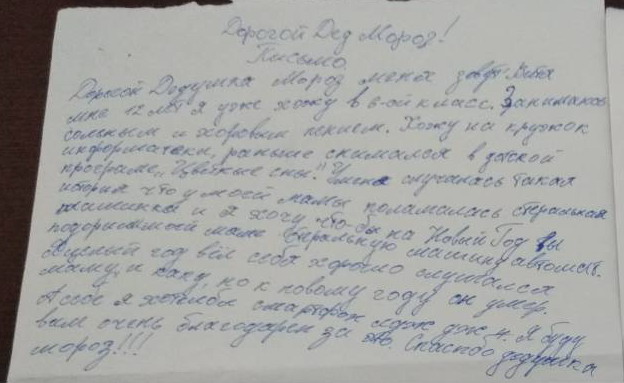 Дорогой Дед Мороз!
Письмо
Дорогой Дедушка Мороз меня зовут Витя
мне 12 лет я уже хожу в 6-ой класс. Занимаюсь
сольным и хоровым пением. Хожу на кружок
информатеки, раньше снимался в детской
програме „Цветные сны". У меня случилась такая
история что у моей мамы поламалась стиральная
машинка и я хочу что-бы на Новый Год вы
подорили моей маме стиральную машину автомат.
Я целый год вёл себя хорошо слушался
маму и папу, но к новому году он умер.
А себе я хотелбы смартфон 4. Я буду
вам очень благодарен за это. Спасибо дедушка
мороз!!!